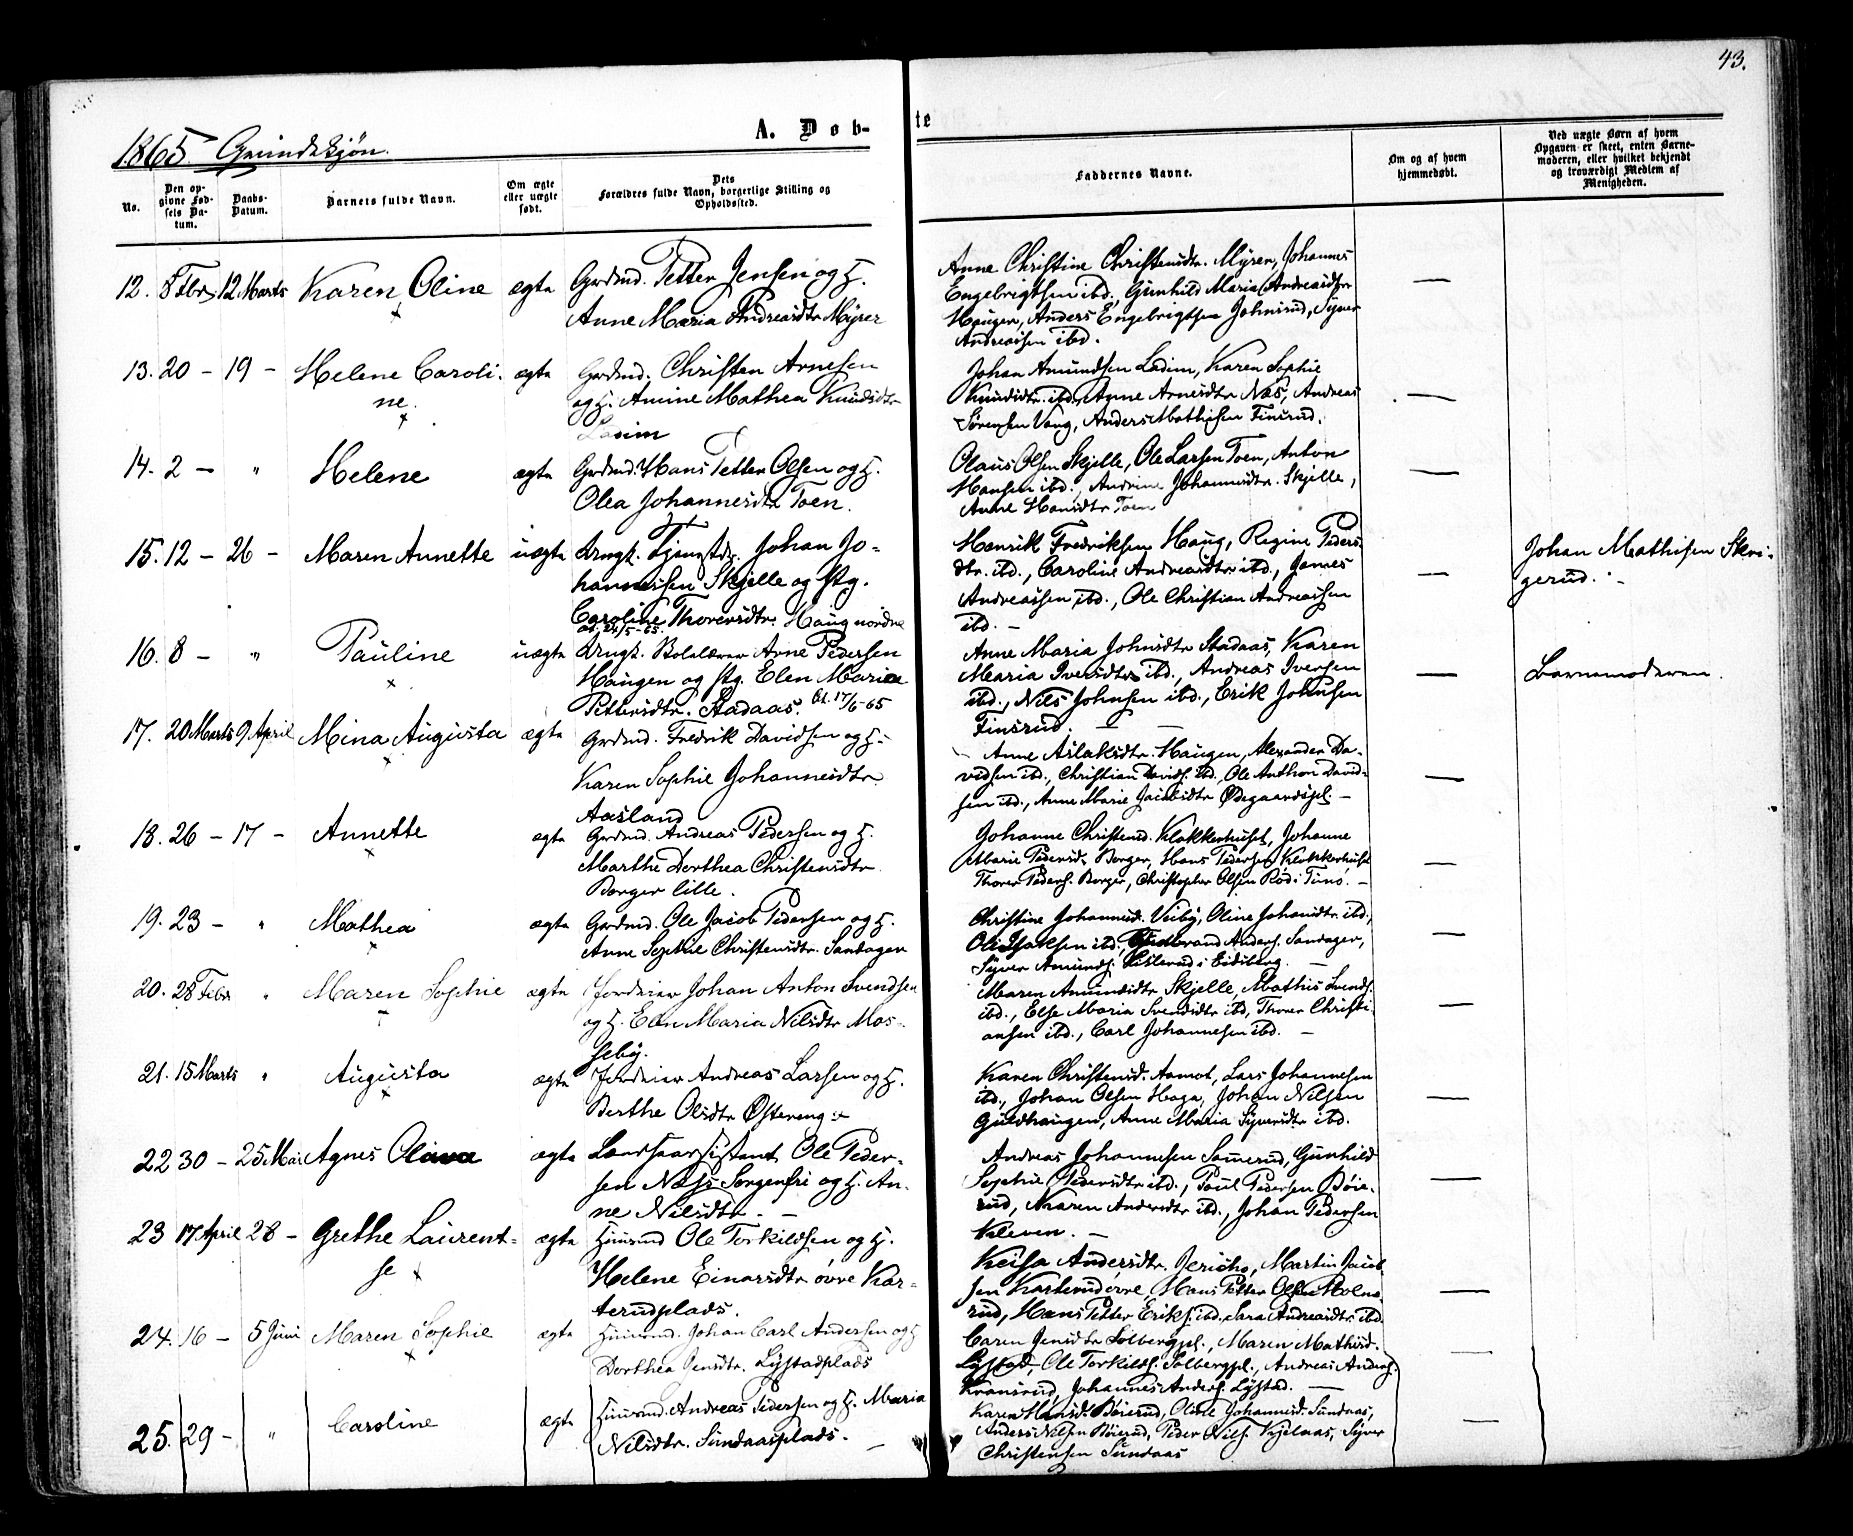 43.
1865 Qvindekjøn.
A. Døb-
te
No.
Den op-
givne Fød-
sels Da-
tum.
Daabs-
Datum.
Barnets fulde Navn.
Om ægte
eller uægte
født.
Dets
Forældres fulde Navn, borgerlige Stilling og
Opholdssted.
Faddernes Navne.
Om og af hvem
hjemmedøbt.
Ved uægte Børn af hvem
Opgaven er skeet, enten Barne-
moderen, eller hvilket bekjendt
og troværdigt Medlem af
Menigheden.
12. 8 Fbr 12 Marts Karen Oline ægte Grdmd. Petter Jensen og H.
Anne Maria Andreasdtr Myrer
Anne Christine Christensdtr. Myrer, Johannes
Engebrigtsen ibd., Gunhild Maria Andreasdtr
Haugen, Anders Engebrigtsen Johnsrud, Syver
Andreassen ibd. —
13. 20 – 19 – Helene Caroli-
ne. ægte Grdmd. Christen Arnesen
og H. Amine Mathea Knudsdtr
Ladim
Johan Amundsen Ladim, Karen Sophie
Knudsdtr. ibd., Anne Arnesdtr Næs, Andreas
Sørensen Vang, Anders Mathisen Finsrud. —
14. 2 – " Helene ægte Grdmd. Hans Petter Olsen og H.
Olea Johannesdtr Toen.
Olaus Olsen Skjelle, Ole Larsen Toen, Anton
Hansen ibd., Andrine Johannesdtr. Skjelle,
Anne Hansdtr Toen —
15. 12 – 26 – Maren Annette uægte Ungk. Tjenestdr. Johan Jo-
hannessen Skjelle og Pig.
Caroline Thorersdtr. Haug nordre
Henrik Fredriksen Haug, Regine Peders-
dtr. ibd., Caroline Andreasdtr ibd., James
Andreassen ibd., Ole Christian Andreassen
ibd. – —
Johan Mathisen Skri-
gerud. –
16. 8 – " Pauline uægte At. 24/5-65.
Ungk. Arne Pedersen
Haugen og Pig. Elen Maria
Pettersdtr. Stadaas. At. 17/6-65
Anne Maria Johnsdtr Stadaas, Karen
Maria Iversdtr ibd., Andreas Iversen
ibd., Nils Johnsen ibd., Erik Johnsen
Finsrud. — —
Barnemoderen.
17. 20 Marts 9 April Mina Augusta ægte Grdmd. Fredrik Davidsen og H.
Karen Sophie Johannesdtr
Aasland
Anne Aslaksdtr. Haugen, Alexander Da-
vidsen ibd., Christian Davids. ibd., Ole Anthon David-
sen ibd., Anne Marie Jacobsdtr Ødegaardspl. –
18. 26 – 17 – Annette ægte Grdmd. Andreas Pedersen og H.
Marthe Dorthea Christensdtr.
Borger lille.
Johanne Christensd. Klokkerhuset, Johanne
Marie Pedersd. Borger, Hans Pedersen Klokkerhuset
Thorer Peders. Borger, Christopher Olsen Rød i Tunø. –
19. 23 – " Mathea ægte Grdmd. Ole Jacob Pedersen og H.
Anne Sophie Christensdtr. Sandager
Christine Johannesd. Veiby, Oline Johansdtr. ibd.,
Ole Isaksen ibd., Anders. Sandager,
Syver Amunds. i Eidsberg. –
20. 28 Febr " Maren Sophie ægte Jordeier Johan Anton Svendsen
og H. Elen Maria Nilsdtr Mos-
seby.
Maren Amundsdtr Skjelle, Mathis Svends.
ibd., Else Maria Svendsdtr ibd., Thorer Christi-
ansen ibd., Carl Johannesen ibd. –
21. 15 Marts " Augusta ægte Jordeier Andreas Larsen og H.
Berthe Olsdtr Østereng –
Karen Christensd. Aamot, Lars Johannesen
ibd., Johan Olsen Haga, Johan Nilsen
Guldhaugen, Anne Maria Syversdtr ibd.
22 30 – 25 Mai Agnes Olava ægte Landhaarsistant Ole Peder-
sen Næss Sorgenfri og H. An-
ne Nilsdtr. –
Andreas Johannesen Samerud, Gunhild
Sophie Pedersdtr ibd., Poul Pedersen Bøie-
rud, Karen Andersdtr ibd., Johan Pedersen
Kleven. –
23 17 April 28 – Grethe Laurent-
se ægte Huusmd Ole Torkildsen og H.
Helene Einarsdtr. øvre Kar-
terudplads.
Keisa Andersdtr. Jericho, Martin Jacob-
sen Karterud øvre, Hans Petter Olsen Holme-
rud, Hans Petter Eriks. ibd., Sara Andreasdtr ibd.
24. 16 – 5 Juni Maren Sophie ægte Huusmd. Johan Carl Andersen og H
Dorthea Jensdtr. Lystadplads
Caren Jensdtr Solbergpl., Maren Mathisd.
Lystad, Ole Torkilds. Solbergpl., Andreas Anders.
Kransrud, Johannes Anders. Lystad. —
25. 29 – " Caroline ægte Huusmd. Andreas Pedersen og H. Maria
Nilsdtr. Sundaasplads. –
Karen Hansd. Bøierud, Oline Johannesd. Sundaas,
Anders Nilsen Bøierud, Peder Nils. Kjelaas, Syver
Christensen Sundaas